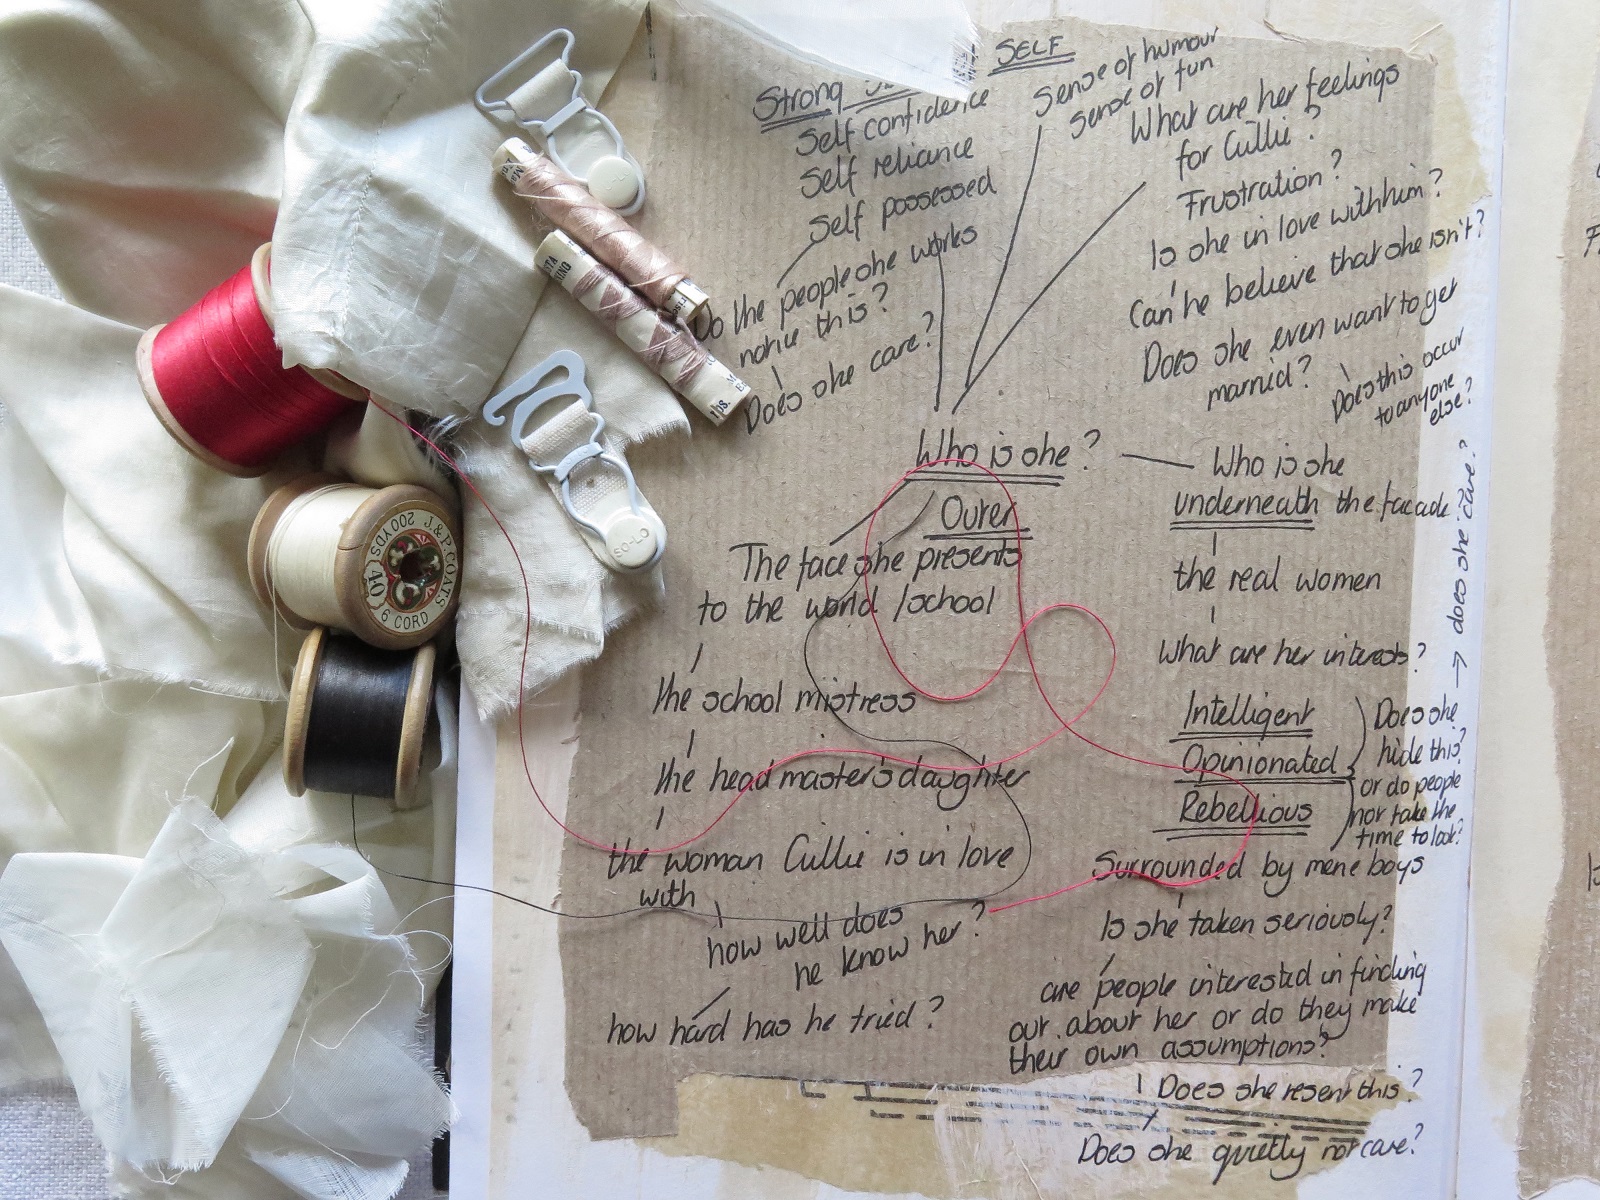 SELF
Strong
Self confidence
Self reliance
Self possessed
Do the people she works
notice this?
Does she care?
Sense of humour
sense of fun
What are her feelings
for Cullie?
Frustration?
Is she in love with him?
Can he believe that she isn't?
Does she even want to get
married?
Does this occur
to anyone
else?
Who is she?
Outer
The face she presents
to the world / school
the school mistress
the head master's daughter
the woman Cullie is in love
with
how well does
he know her?
how hard has he tried?
Who is she
underneath the facade
the real women
What are her interests?
Intelligent
Opinionated
Rebellious
Does she
hide this?
or do people
not take the
time to look?
→ does she care?
Surrounded by men & boys
Is she taken seriously?
are people interested in finding
out about her or do they make
their own assumptions?
Does she resent this?
Does she quietly not care?
J. & P. COATS
200 YDS
40
6 CORD